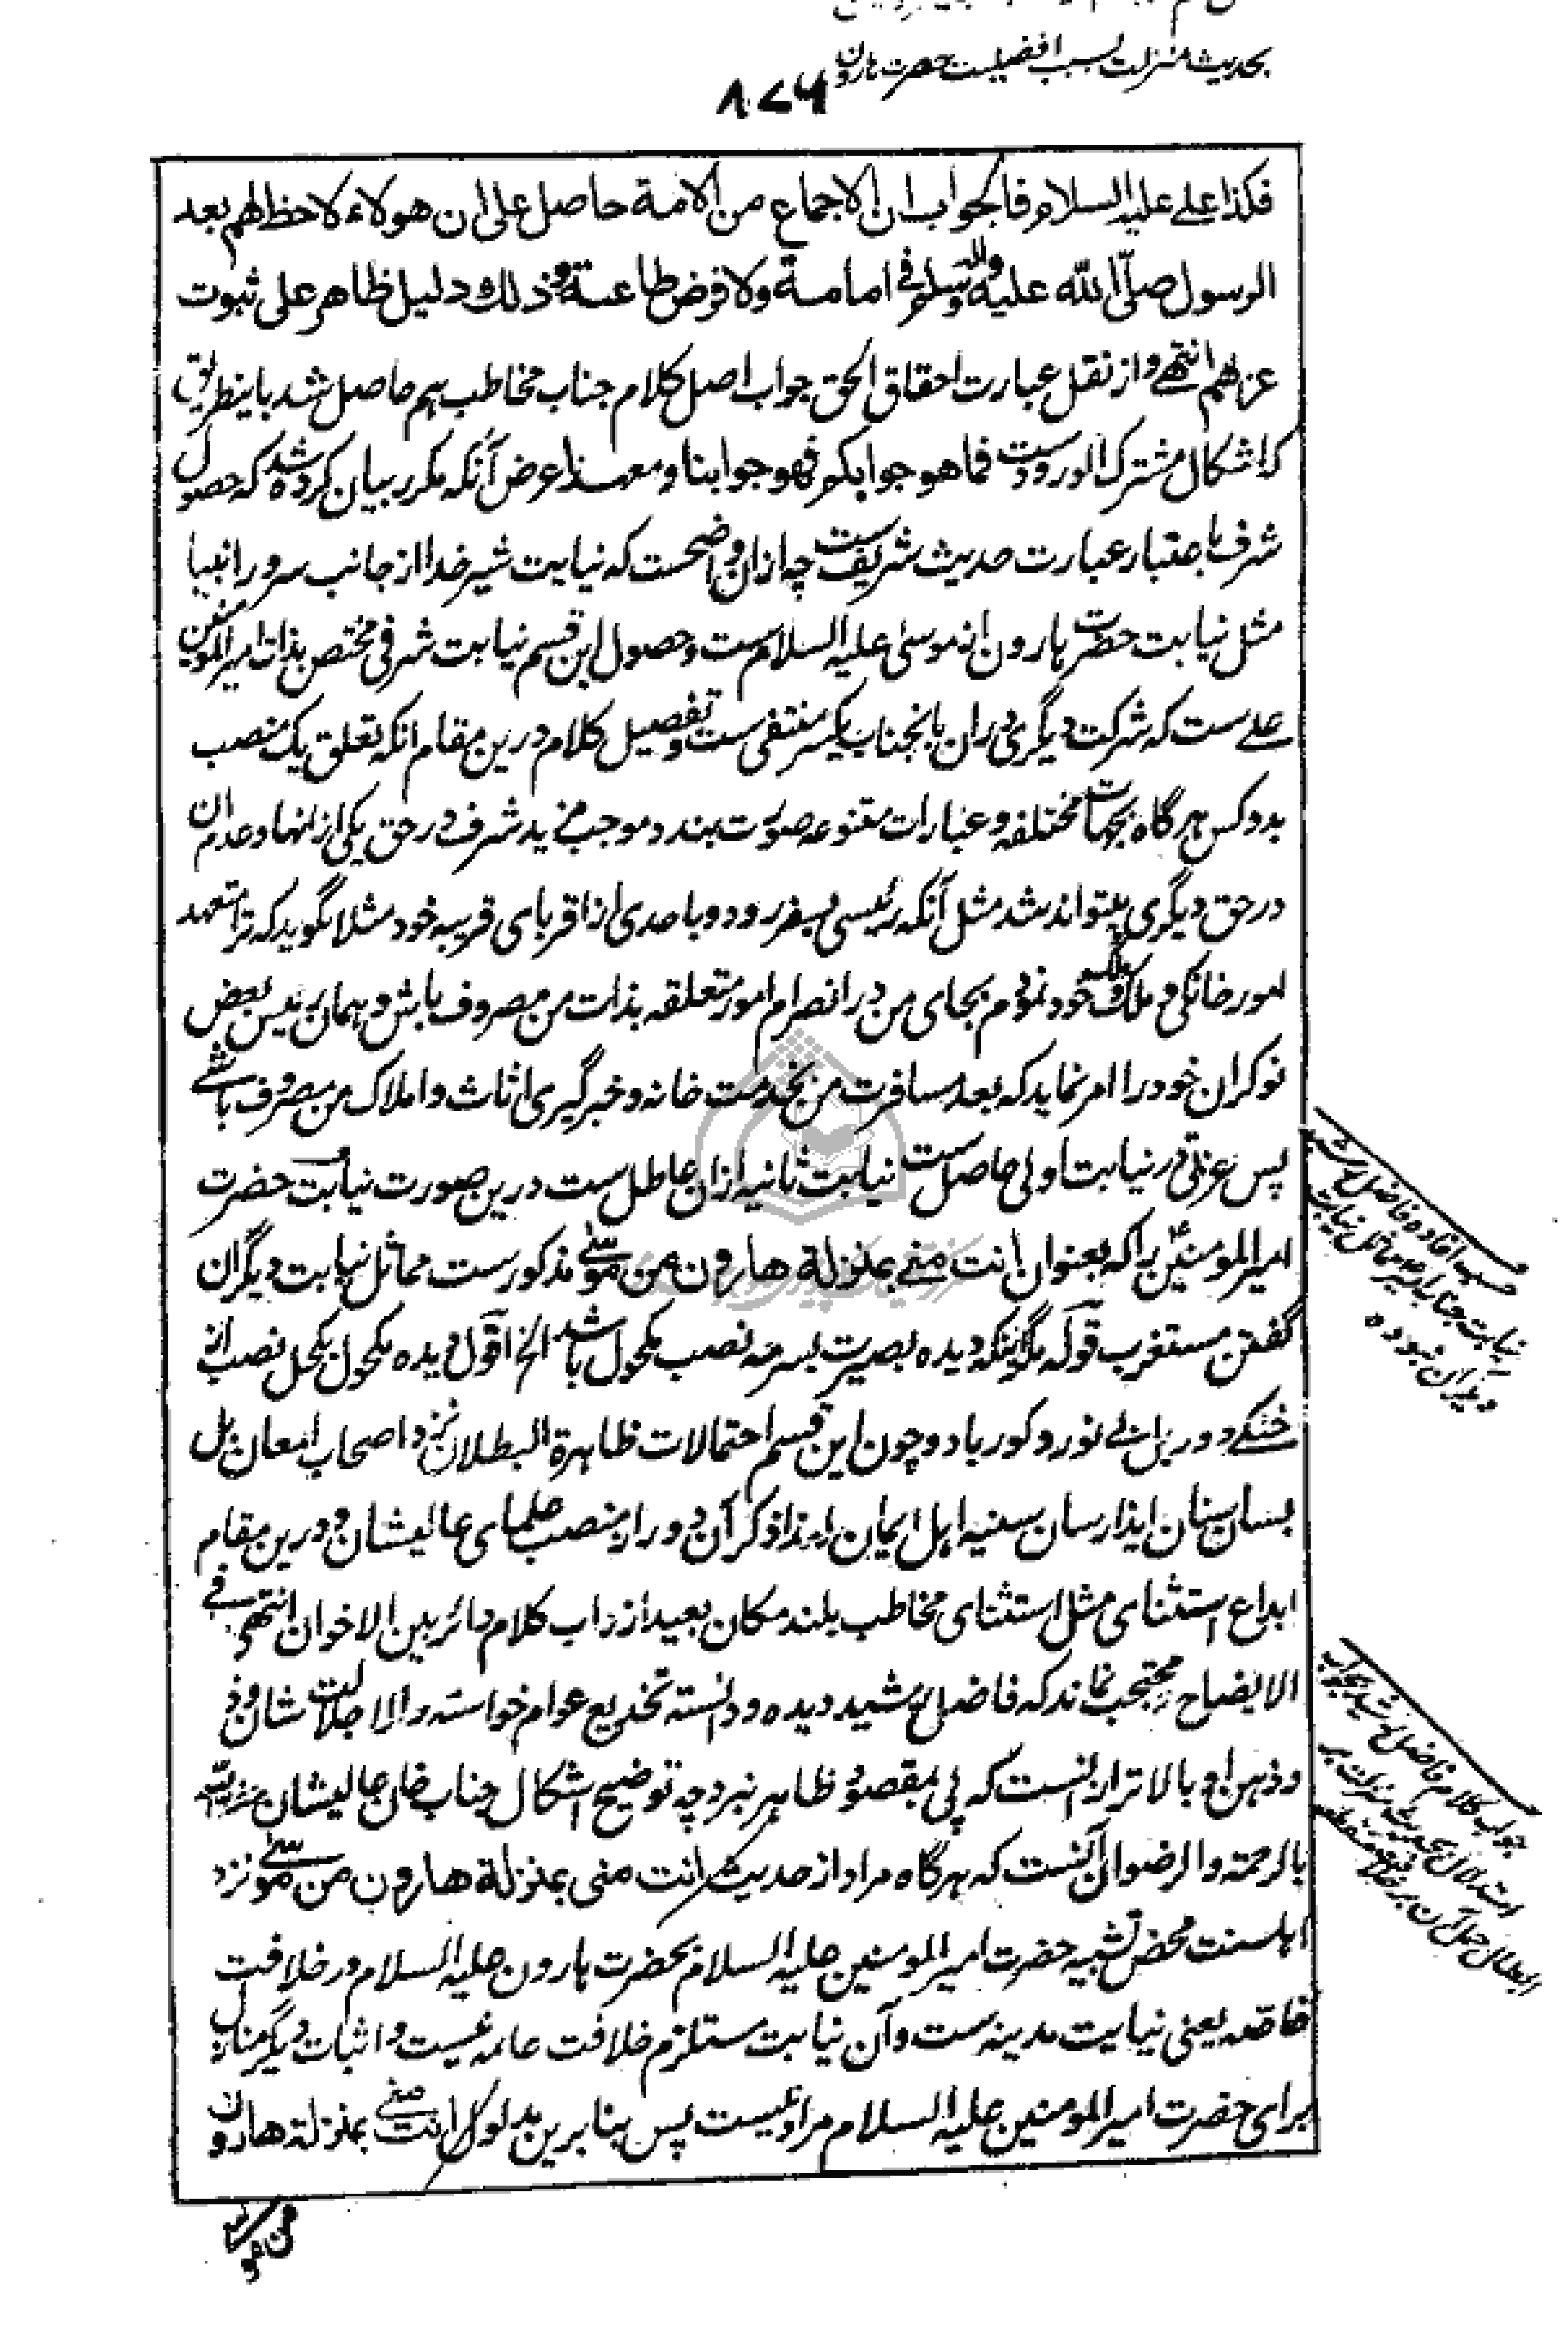 بحدیث منزلت بسبب افضلیت حضرت هارون
۸۷۶
فکذا علی علیه السلام فالجواب ان الاجماع من الامة حاصل علی ان هولاء لاحظ لهم بعد
الرسول صلّی الله علیه واله وسلم فی امامة ولا فرض طاعة وذلك دلیل ظاهر علی ثبوت
عزلهم انتهی و از نقل عبارت احقاق الحق جواب اصل کلام جناب مخاطب هم حاصل شد باینطریق
که اشکال مشترک الورودست فما هو جوابکم فهو جوابنا و معهذا عرض آنکه مکرر بیان کرده شد که حصول
شرف باعتبار عبارت حدیث شریفست چه ازان واضحست که نیابت شیر خدا از جانب سرور انبیا
مثل نیابت حضرت هارون از موسی علیه السلام ست و حصول این قسم نیابت شرفی مختص بذات امیر المومنین
علی ست که شرکت دیگری دران بانجناب یکسر منتفی ست و تفصیل کلام درین مقام انکه تعلق یک منصب
بدو کس هرگاه بجهات مختلفه و عبارات متنوعه صورت بندد موجب مزید شرف در حق یکی ازانها و عدم ان
در حق دیگری میتواند شد مثل آنکه رئیسی بسفر رود و باحدی از اقربای قریبه خود مثلا بگوید که ترا متعهد
امور خانگی و ملک خود نمودم بجای من در انصرام امور متعلقه بذات من مصروف باش و همان رئیس بعض
نوکران خود را امر نماید که بعد مسافرت من بخدمت خانه و خبرگیری اثاث و املاک من مصروف باشی
پس عزتی در نیابت اولی حاصل ست نیابت ثانیه ازان عاطل ست درین صورت نیابت حضرت
امیر المومنین را که بعنوان انت منی بمنزلة هارون من موسی مذکورست مماثل نیابت دیگران
گفتن مستغرب قوله مگر اینکه دیده بصیرت بسرمه نصب مکحول باشد الخ اقول دیده مکحول بکحل نصب از
خنکی دور بل بی نور و کور باد و چون این قسم احتمالات ظاهرة البطلان نزد اصحاب امعان بل
بسان سنان ایذا رسان سینه اهل ایمان لهذا ذکر آن دور از منصب علمای عالیشان و درین مقام
ابداع استثنای مثل استثنای مخاطب بلند مکان بعید از داب کلام دائر بین الاخوان انتهی ما فی
الایضاح محتجب نماند که فاضل رشید دیده و دانسته تخدیع عوام خواسته والا جلالت شان
و ذهن او بالاتر ازانست که پی بمقصود ظاهر نبرد چه توضیح اشکال جناب خان عالیشان
بالرحمة والرضوان آنست که هرگاه مراد از حدیث شریف انت منی بمنزلة هارون من موسی نزد
اهلسنت محض تشبیه حضرت امیر المومنین علیه السلام بحضرت هارون علیه السلام در خلافت
خاصه یعنی نیابت مدینه ست و آن نیابت مستلزم خلافت عامه نیست و اثبات دیگر منازل
برای حضرت امیر المومنین علیه السلام مراد نیست پس بنابرین مدلول انت منی بمنزلة هارون
حسب افاده فاضل رشید
نیابت جناب امیر مماثل نیابت
دیگران نبوده
جواب کلام فاضل رشید بجواب
استدلال بحدیث منزلت بر
ابطال حمل آن بر خلافت منقطعه
من موسی